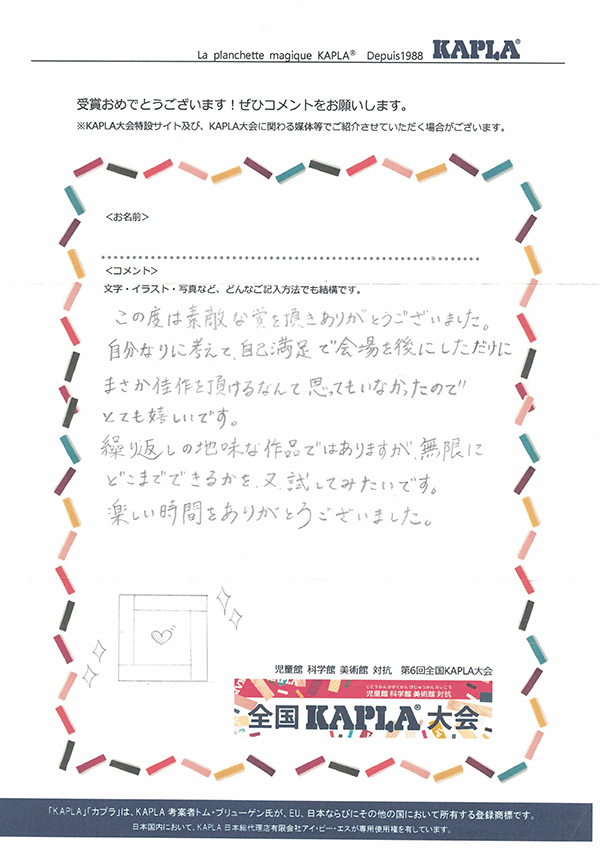 La planchette magique KAPLA® Depuis1988 KAPLA®
受賞おめでとうございます！ぜひコメントをお願いします。
※KAPLA大会特設サイト及び、KAPLA大会に関わる媒体等でご紹介させていただく場合がございます。
＜お名前＞
＜コメント＞
文字・イラスト・写真など、どんなご記入方法でも結構です。
この度は素敵な賞を頂きありがとうございました。
自分なりに考えて、自己満足で会場を後にしただけに
まさか佳作を頂けるなんて思ってもいなかったので
とても嬉しいです。
繰り返しの地味な作品ではありますが、無限に
どこまでできるかを、又、試してみたいです。
楽しい時間をありがとうございました。
児童館 科学館 美術館 対抗 第6回全国KAPLA大会
じどうかん かがくかん びじゅつかん たいこう
児童館 科学館 美術館 対抗
全国KAPLA®大会
「KAPLA」「カプラ」は、KAPLA 考案者トム・ブリューゲン氏が、EU、日本ならびにその他の国において所有する登録商標です。
日本国内において、KAPLA 日本総代理店有限会社アイ・ピー・エスが専用使用権を有しています。